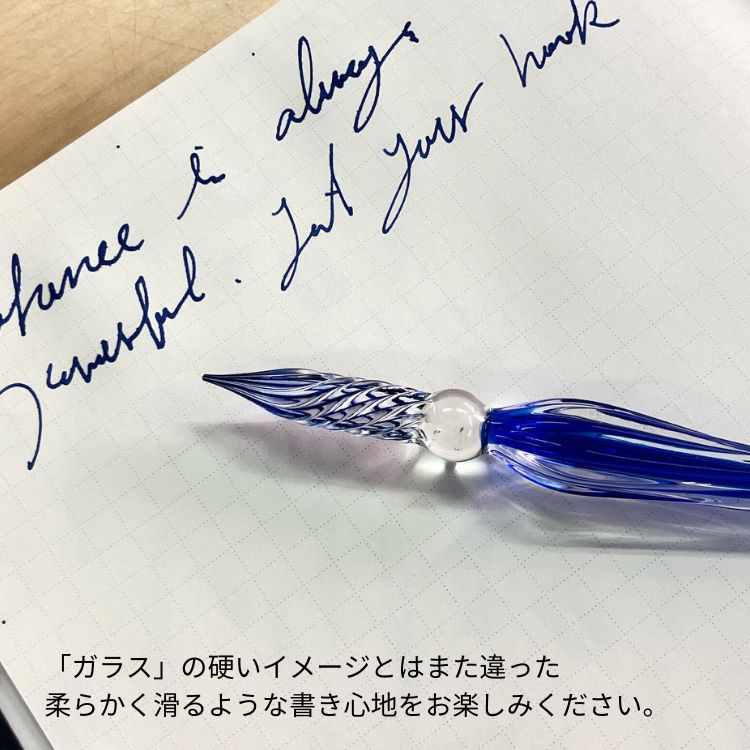 is always
powerful. Let your
「ガラス」の硬いイメージとはまた違った
柔らかく滑るような書き心地をお楽しみください。